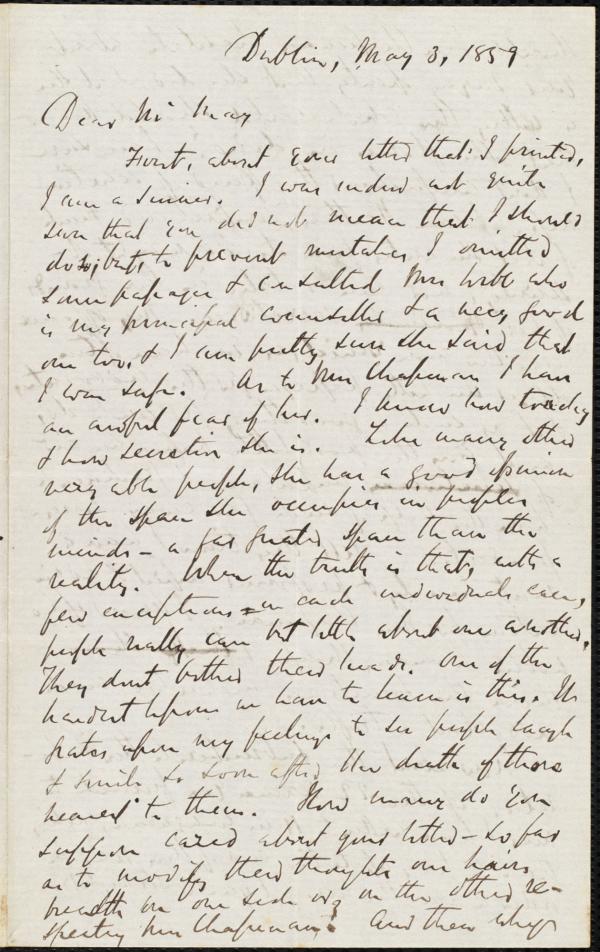 Dublin, May 3, 1859
Dear Mr May
First, about your letter that I printed,
I am a sinner. I was indeed not quite
sure that you did not mean that I should
do so; but, to prevent mistakes, I omitted
some passages & consulted Mrs Webb who
is my principal counseller & a very good
one too, & I am pretty sure she said that
I was safe. As to Mrs Chapman I have
an awful fear of her. I know how touchy
& how secretive she is. Like many other
very able people, she has a good opinion
of the space she occupies in peoples
minds - a far greater space than the
reality. When the truth is that, with a
few exceptions in each individuals case,
people really care but little about one another.
They dont bother their heads. One of the
hardest lessons we have to learn is this. It
grates upon my feelings to see people laugh
& smile so soon after the death of those
nearest to them. How many do you
suppose cared about your letter - so far
as to modify their thoughts one hairs
breadth on one side or on the other re-
specting Mrs Chapman? And then why